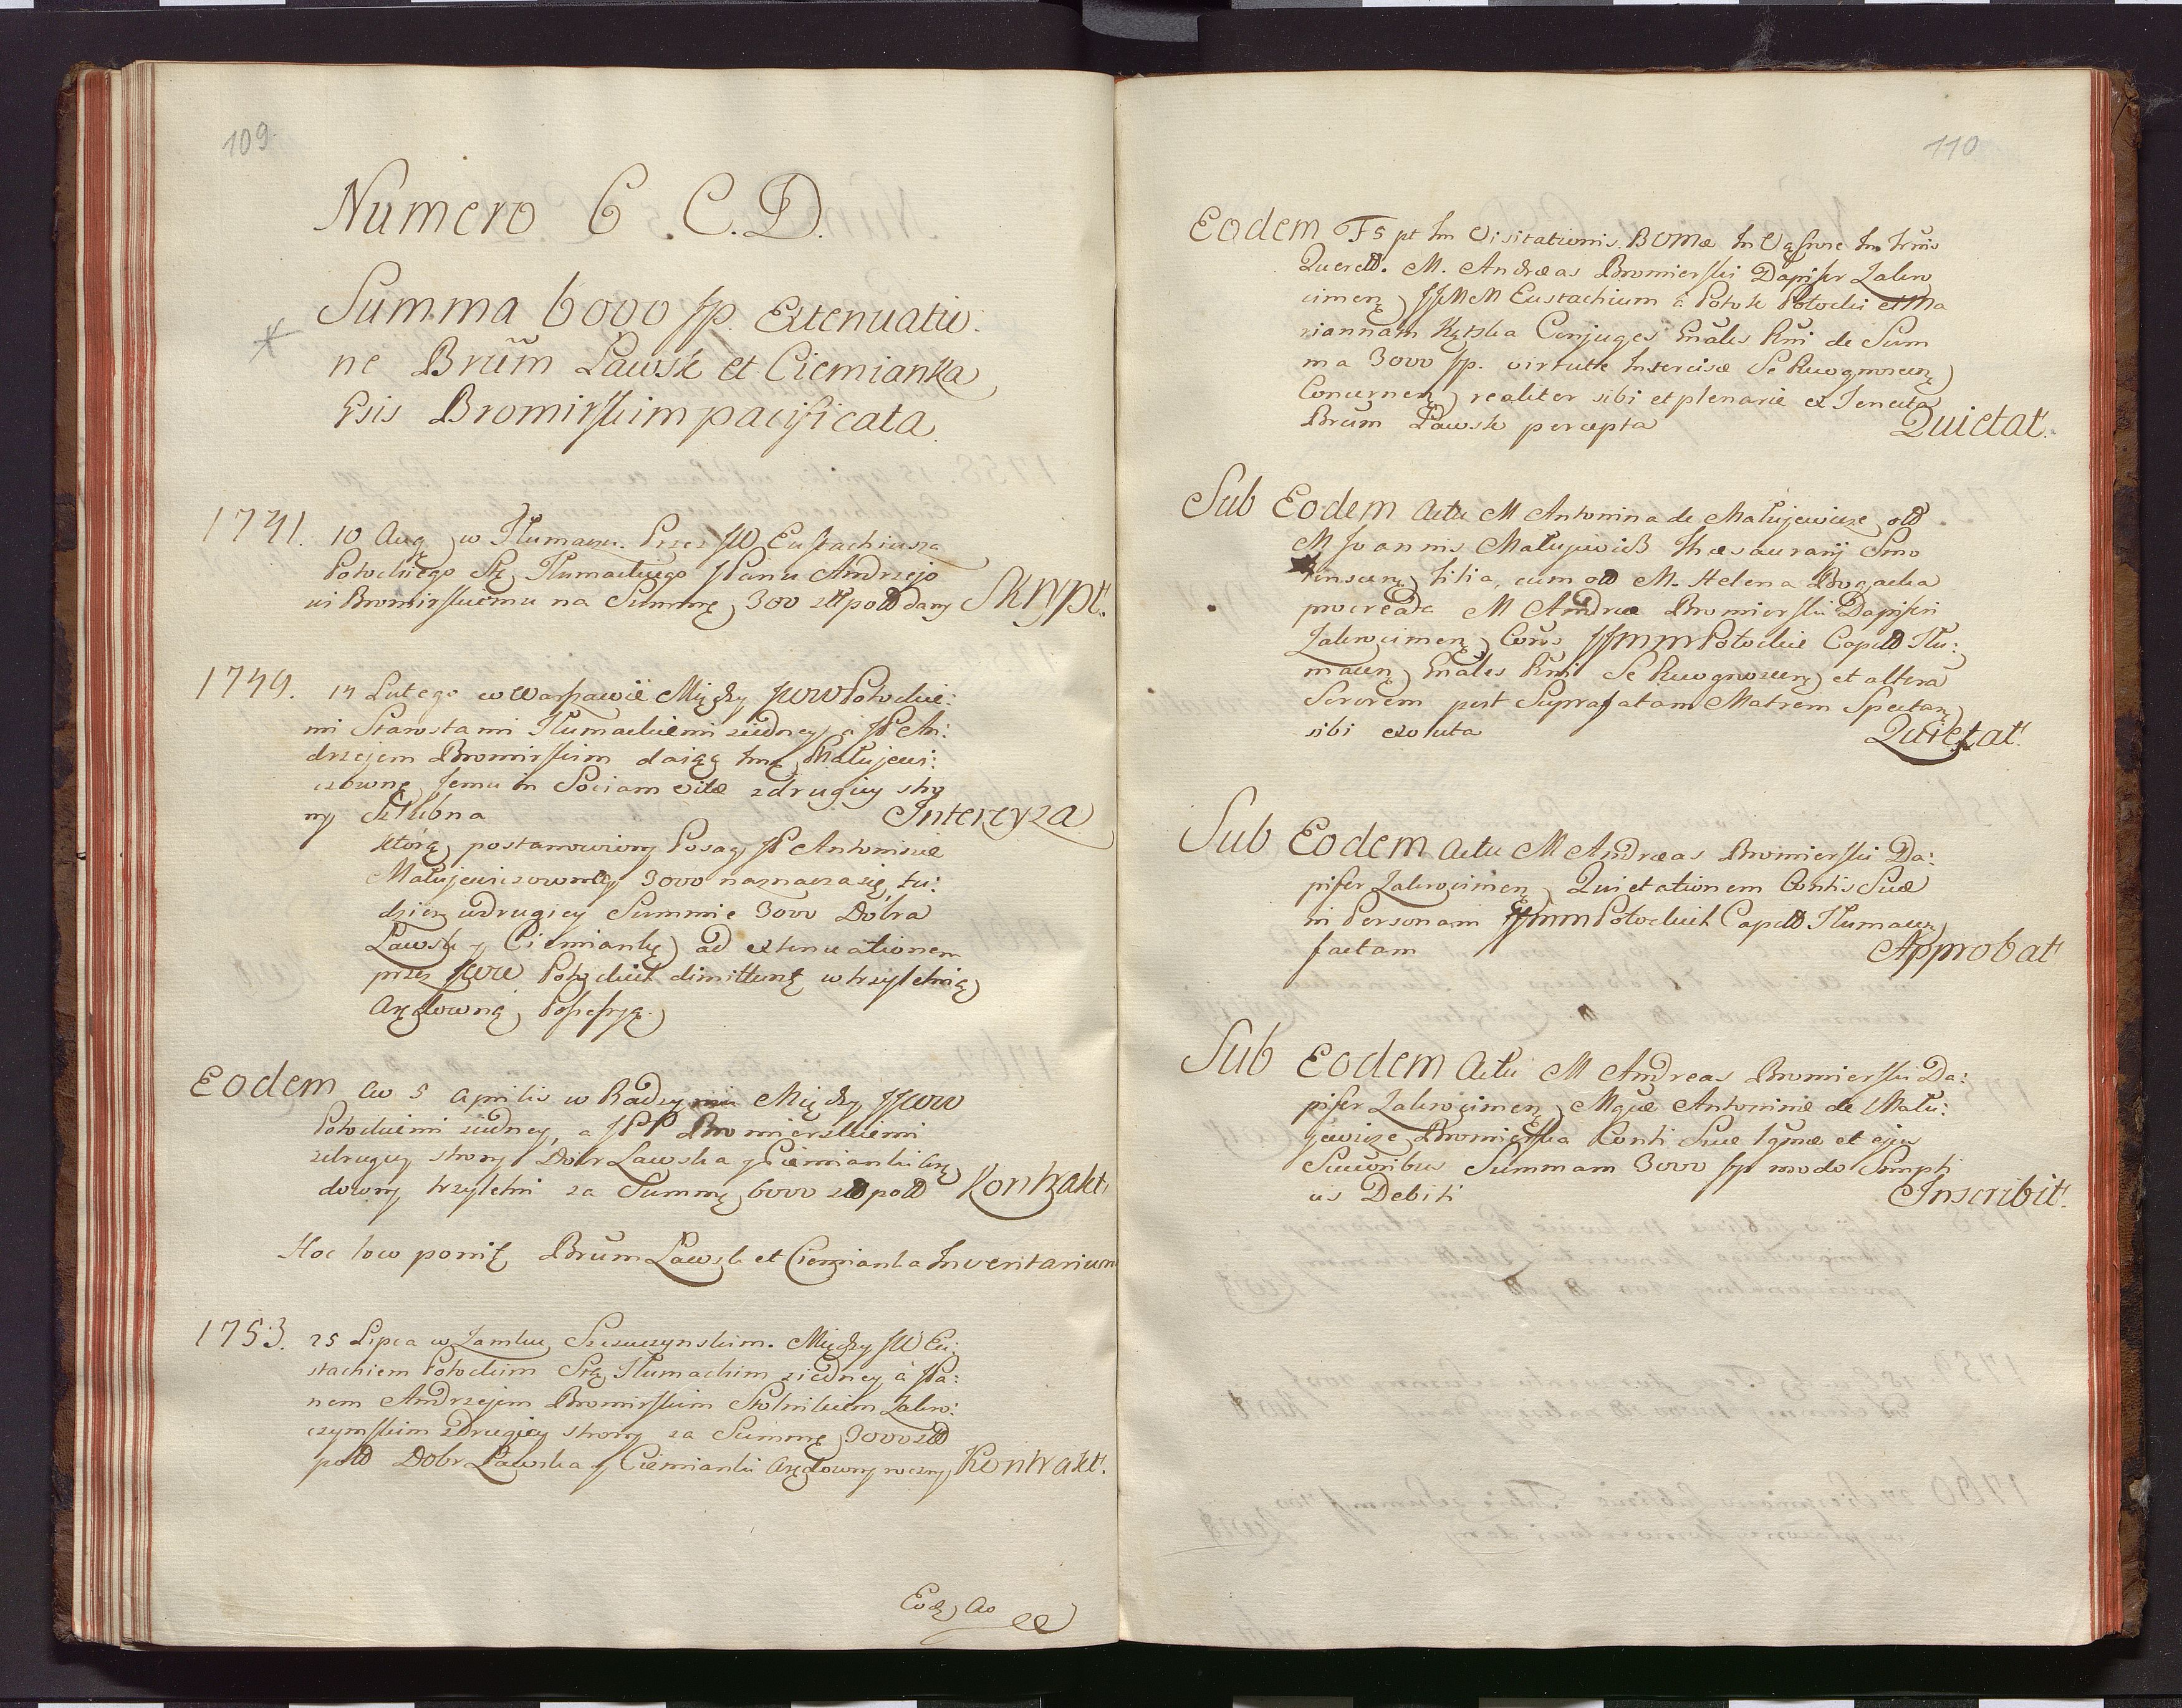 109
Numero 6. C. D.
Summa 6000 fp. Extenuatio:
ne Brum Ławsk et Ciemianka
Gsis Bromirskim pacificata.
1741. 10 Aug w Tłumaczu. Przez JW Eustachiusza
Potockiego Stę Tłumackiego JPanu Andrzejo
wi Bromirskiemu na Summę 300 złł poll dany Skrypt.
1749. 14 Lutego w Warszawie Między JWW Potockie:
mi Starostami Tłumackiemi zjedney, a JP An:
drzejem Bromirskim daiąc Imę Matujewi:
czownę Jemu in Sociam vitæ zdrugiey stro
ny Szlubna Intercyza
którą postanowiony Posag JP Antoninie
Matujewiczowney 3000 naznacza się, tu:
dzież w drugiey Summie 3000 Dobra
Ławsk y Ciemiankę ad extenuationem
przez JWW Potockich dimittunt w trzyletnią
Arędowną Possessyą.
Eodem Ao 5 Aprilis w Radzyniu Między JJWW
Potockiemi zjedney, a JPP Bromierskiemi
zdrugiey strony Dobr Ławska y Ciemianki Arę
downy trzyletni za Summę 6000 złł poll Kontrakt
Hoc loco ponit Brum Ławsk et Ciemianka Inventarium
1753. 25 Lipca w Zamku Szczuczynskim. Między JW Eu:
stachiem Potockim Stę Tłumackim zjedney à JPa:
nem Andrzejem Bromirskim Stolnikiem Zakro:
czymskim zdrugiey strony za Summę 3000 złł
poll Dobr Ławska y Ciemianki Arędowny roczny Kontrakt.
Eodę Ao
110
Eodem F5 pt Im Visitationis BVMæ In Vąsosze In Truis
Querell. M. Andræas Bromierski Dapifer Zakro
cimen JJMM Eustachium à Potok Potocki et Ma
riannam Kątska Conjuges Gnales Rni de Sum
ma 3000 fp. virtute Intercisæ Se Recognoscen
Concernen realiter sibi et plenarie ex Tenuta
Brum Ławsk percepta Quietat.
Sub Eodem Actu M Antonina de Matujewicze oll
M Joannis Matujewicz Thesaurarij Smo
lenscen filia, cum oll M. Helena Bogacka
procreata M Andreæ Bromierski Dapiferi
Zakrocimen Coñs JJMM Potockie Capell Tłu:
maczen Gnales Rni Se Recognoscen et altera
Sororem post Suprafatam Matrem Spectan
sibi exoluta Quietat.
Sub Eodem Actu M Andræas Bromierski Da:
pifer Zakrocimen Quietationem Contis Suæ
in Personam JJMM Potockich Capell Tłumaczen
factam Approbat
Sub Eodem Actu M Andreas Bromierski Da:
pifer Zakrocimen Mgcæ Antoninæ de Matu:
jewicze Bromierska Conti Suæ Igmæ et ejus
Succoribus Summam 3000 fp modo Simpli
cis Debiti Inscribit.